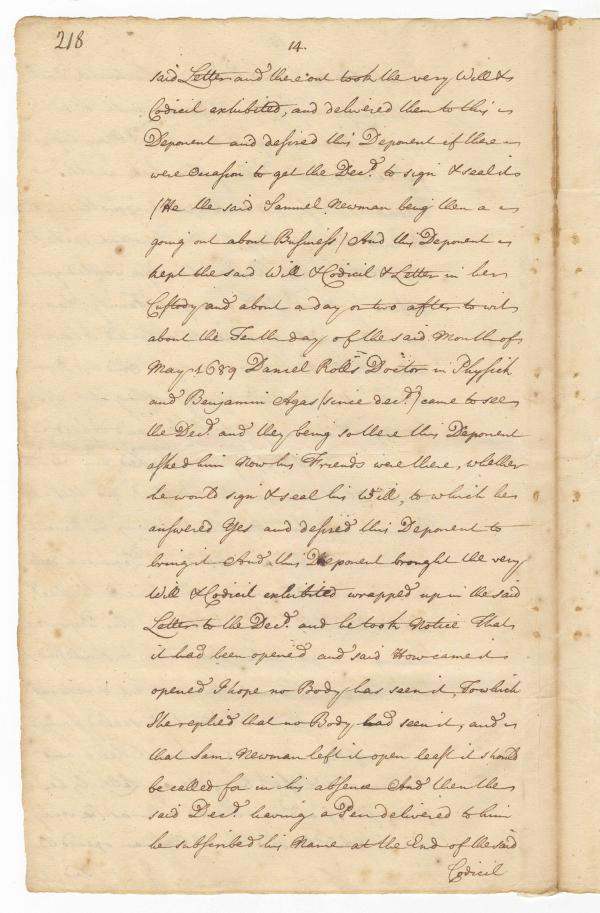 218
14.
said Letter and there out took the very Will &
Codicil exhibited, and delivered them to this
Deponent and desired this Deponent if there
were Occasion to get the Decd. to sign & seal it
(He the said Samuel Newman being then a
going out about Business) And this Deponent
kept the said Will & Codicil & Letter in her
Custody and about a day or two after to wit
about the Tenth day of the said Month of
May 1689 Daniel Rolls Doctor in Physick
and Benjamin Agas (since decd.) came to see
the Decd. and they being so there this Deponent
asked him Now his Friends were there, whether
he would sign & seal his Will, to which he
answered Yes and desired this Deponent to
bring it And this Deponent brought the very
Will & Codicil exhibited wrapped up in the said
Letter to the Decd. and he took Notice That
it had been opened and said How came it
opened I hope no Body has seen it, To which
She replied that no Body had seen it, and
that Sam. Newman left it open least it should
be called for in his absence And then the
said Decd. having a Pen delivered to him
he subscribed his Name at the End of the said
Codicil